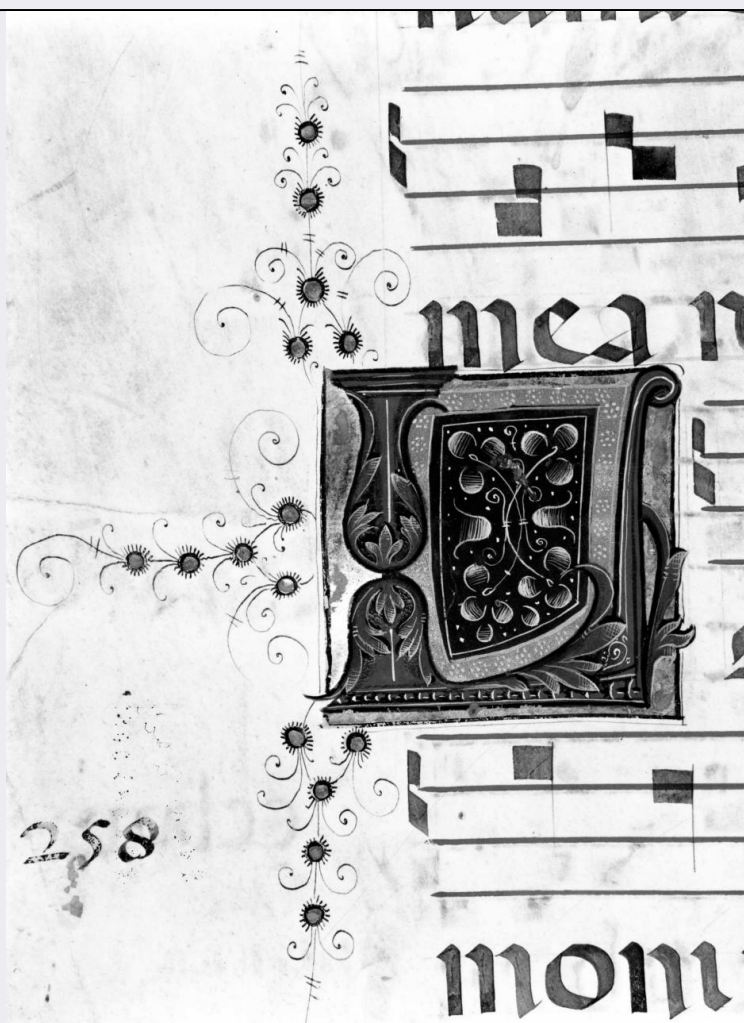 mea
L
258
mom